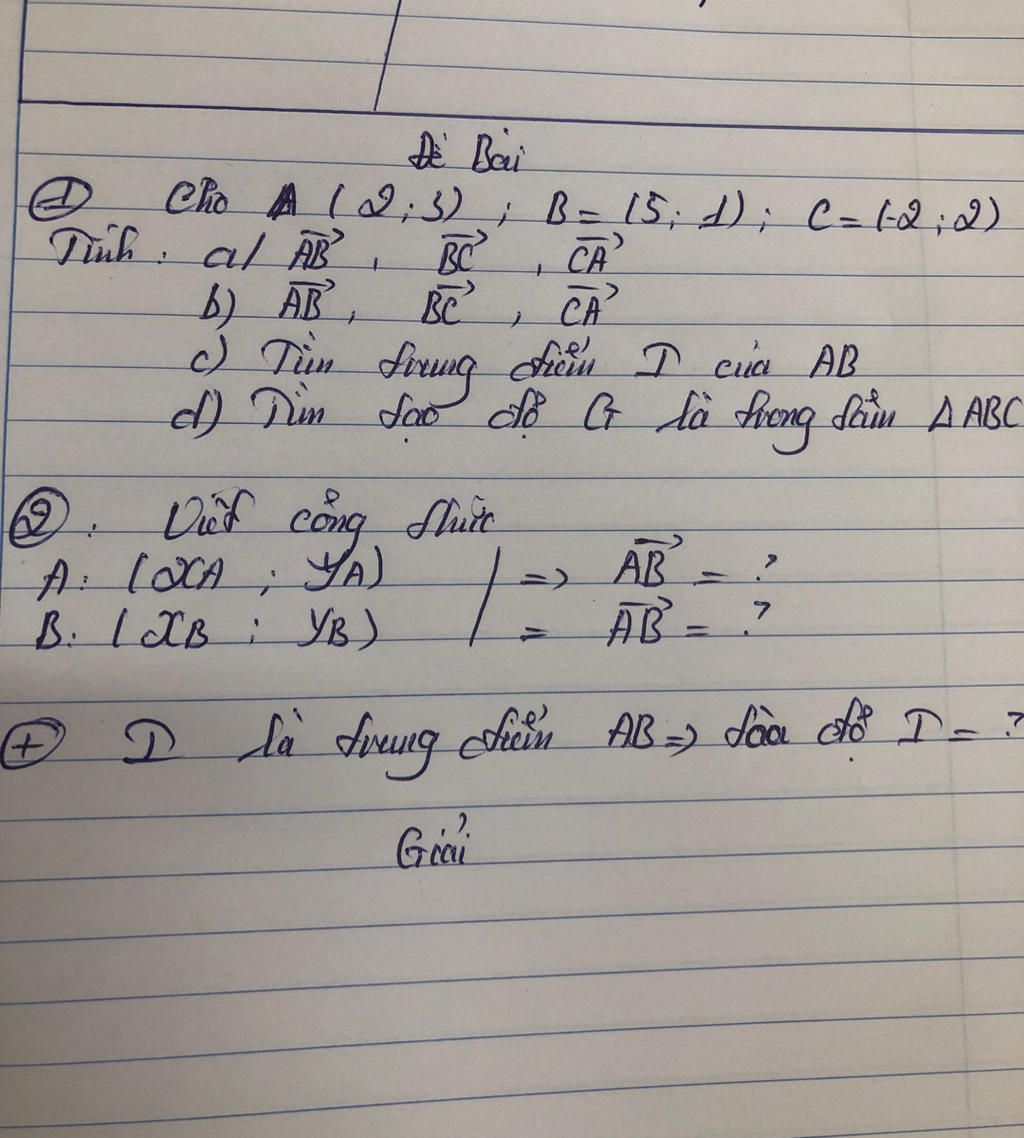 Đề Bài
① Cho A (2;3) ; B = (5; 1) ; C = (-2 ; 2)
Tính : a/ AB→ , BC→ , CA→
b) AB→ , BC→ , CA→
c) Tìm trung điểm I của AB
d) Tìm tạo độ G là trong tâm ΔABC
②. Viết công thức
A: (xA ; yA) | => AB→ = ?
B: (xB ; yB) | = AB→ = ?
⊕ I là trung điểm AB => tòa độ I = ?
Giải